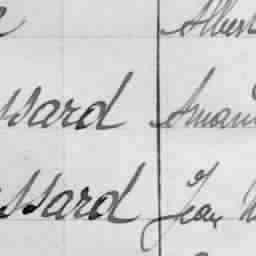 Albert
ssard Aman
ssard Jean